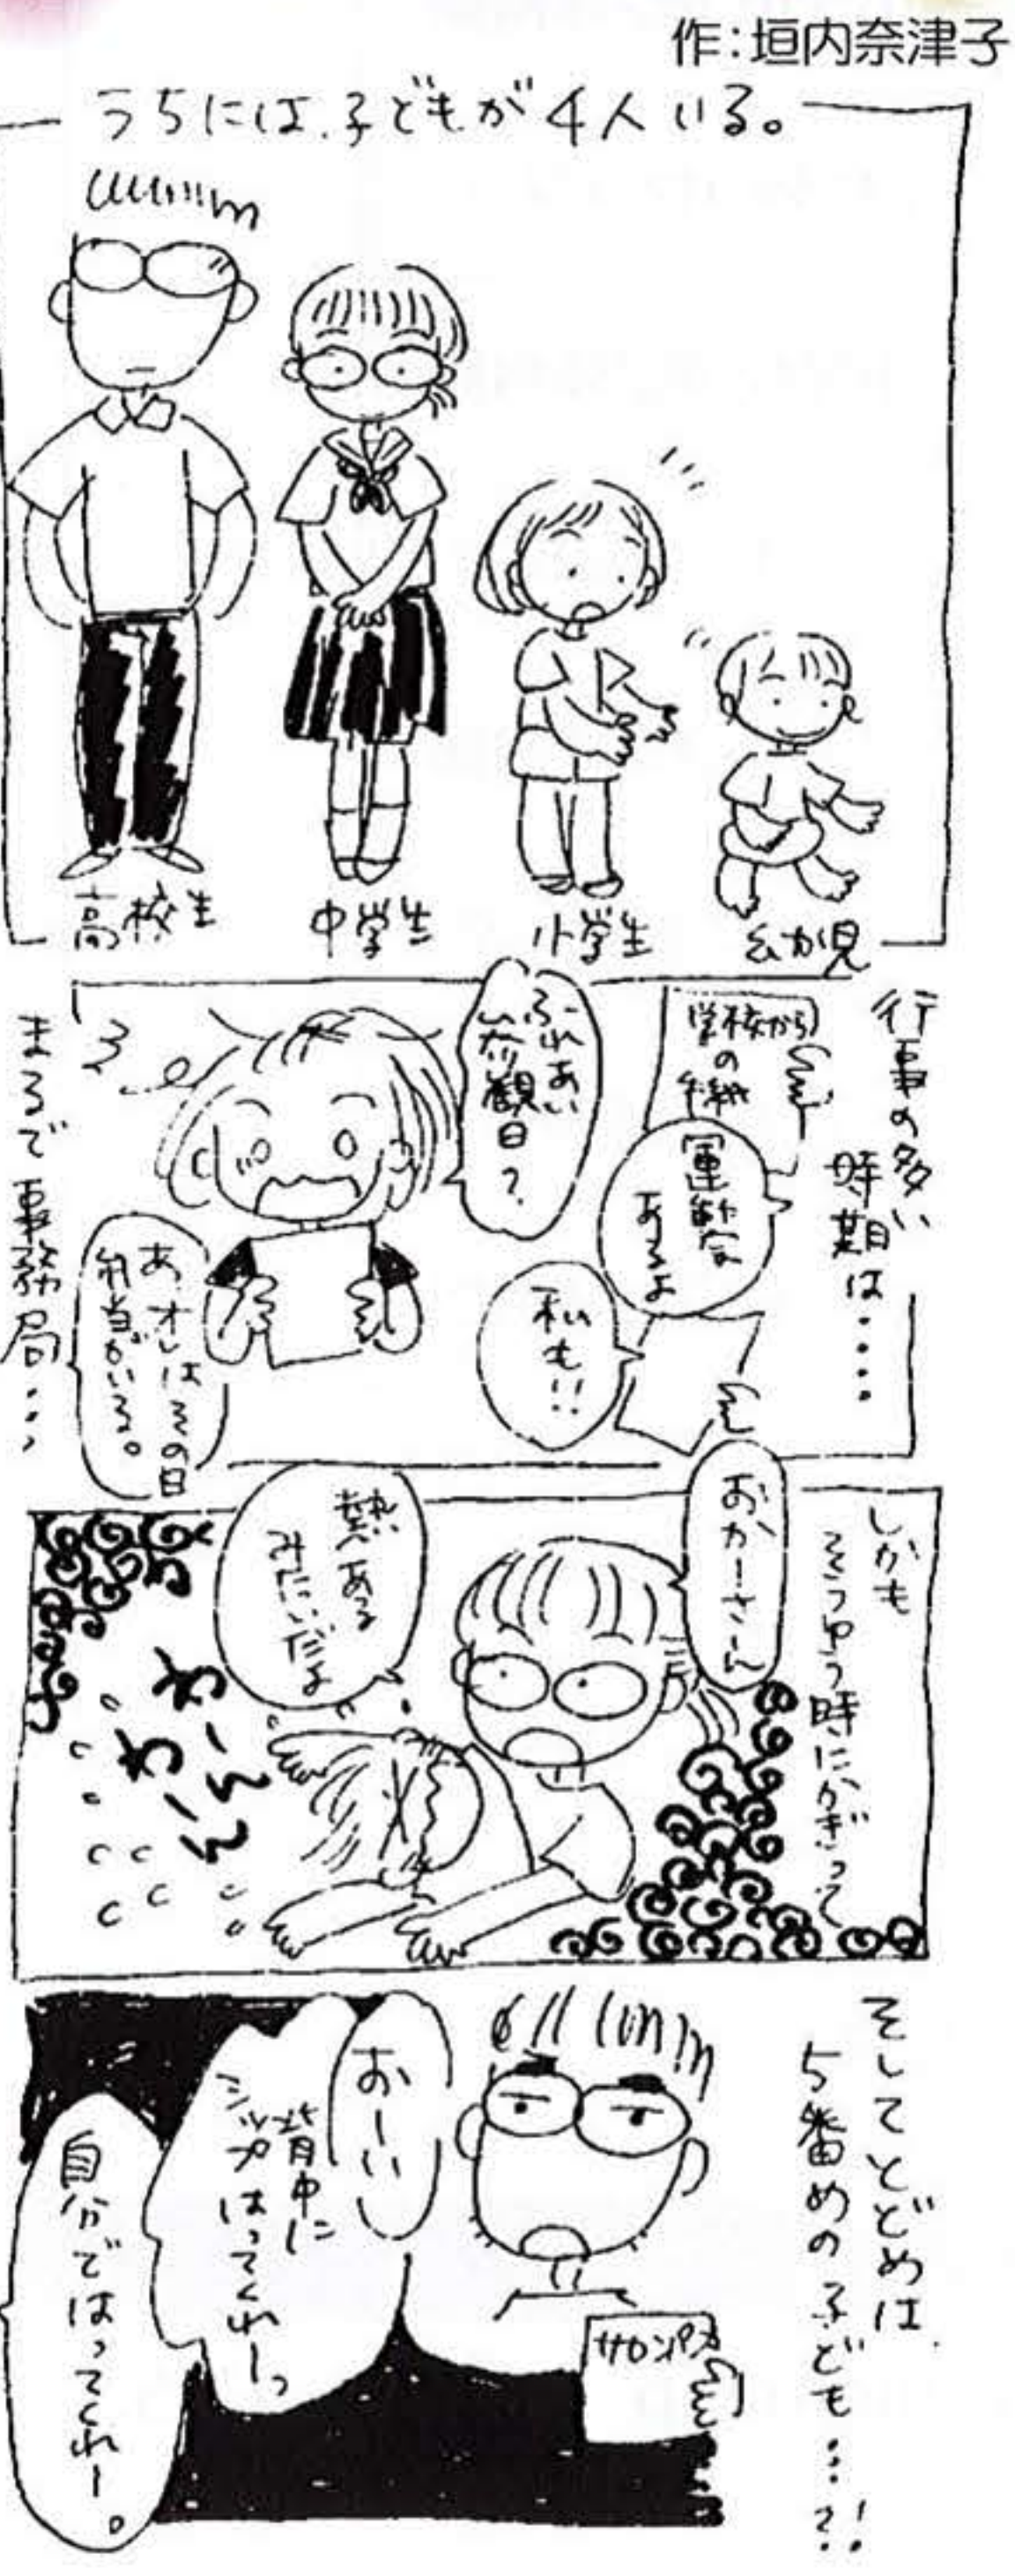 作:垣内奈津子
うちには、子どもが4人いる。
高校生
中学生
小学生
幼児
行事の多い
時期は・・・・
学校から
の手紙
運動会
あるよ
私も!!
ふれあい
参観日?
あオレはその日
弁当がいる。
まるで事務局・・・
しかも
そうゆう時にかぎって
おかーさん
熱ある
みたいだよ
そしてとどめは
5番めの子ども・・・?!
おーい
背中に
シップはってくれーっ
サロンパス
自分ではってくれー。